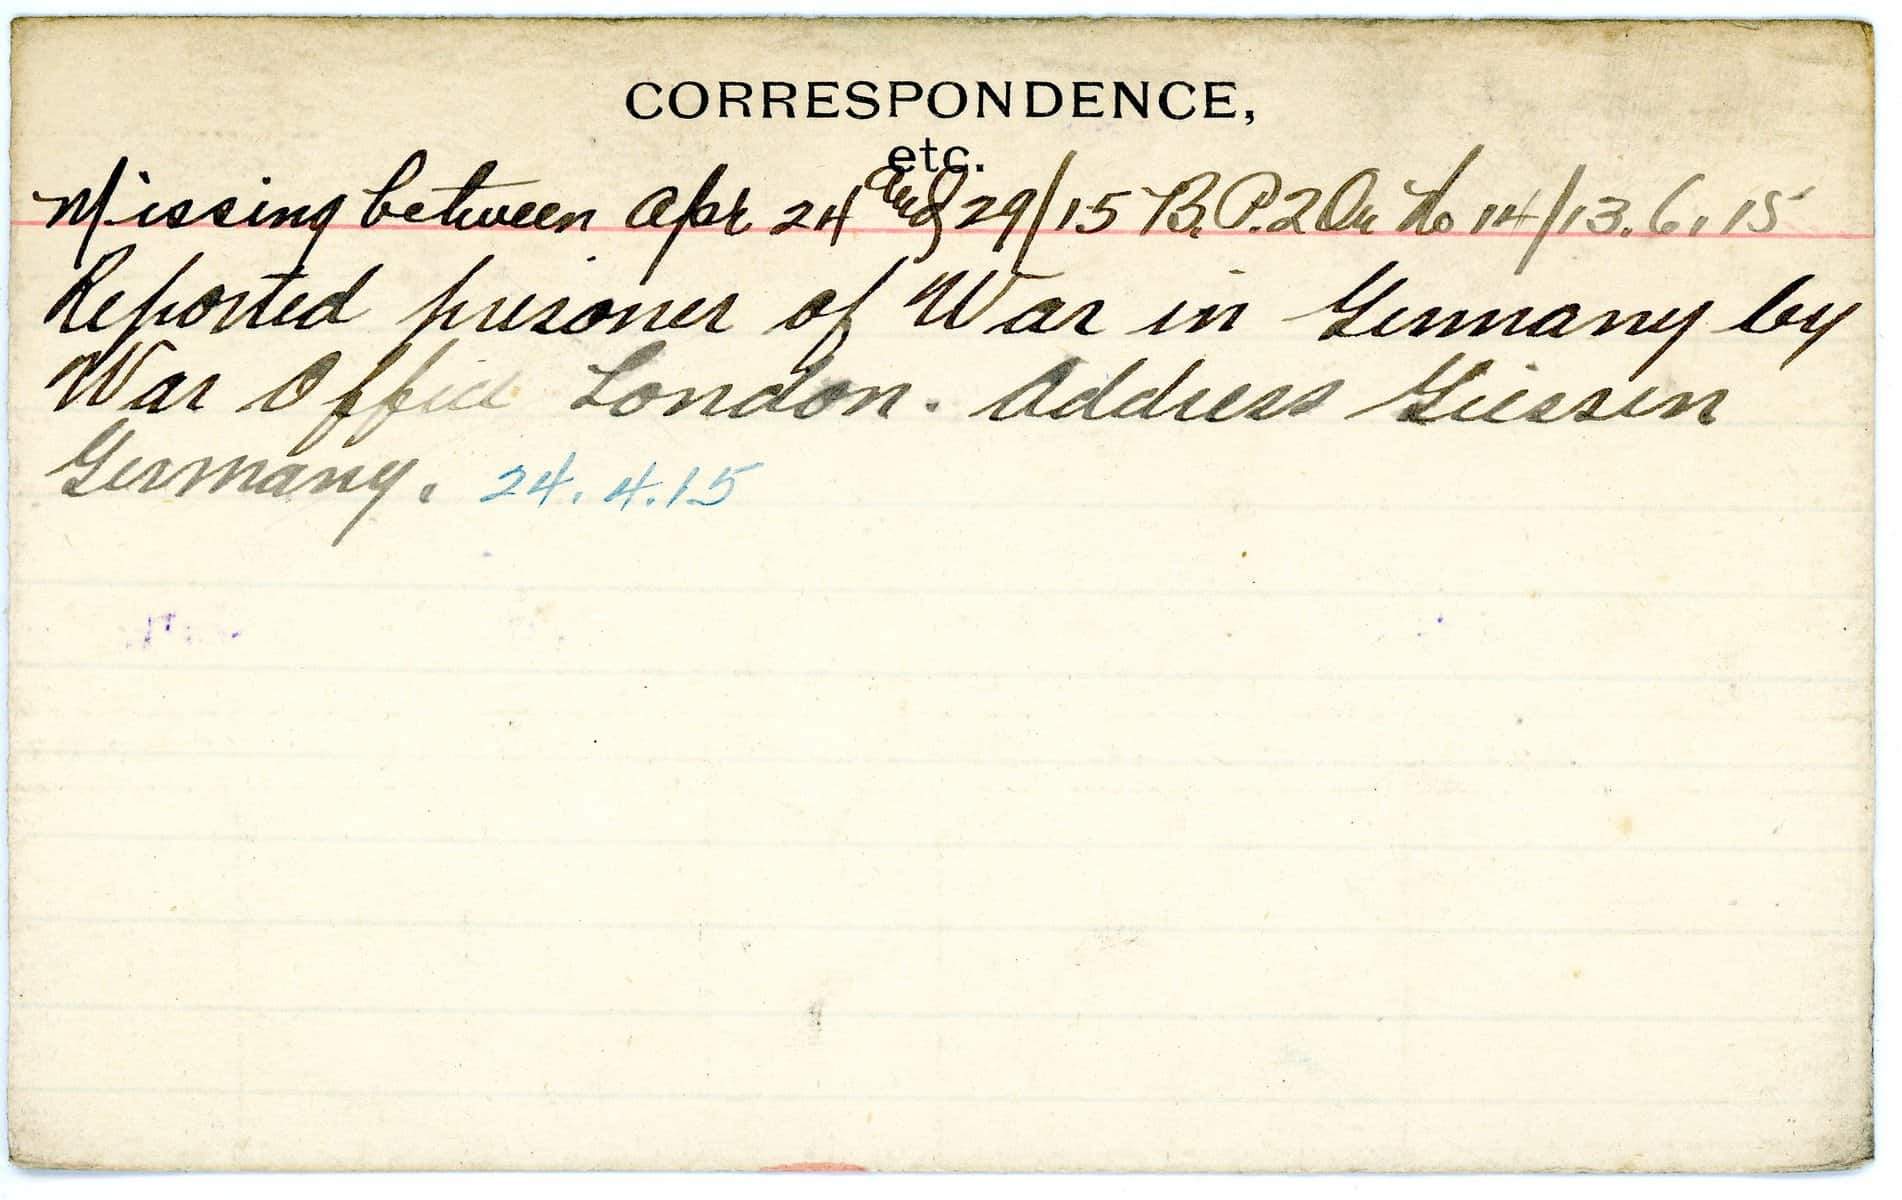 CORRESPONDENCE,
etc.
Missing between Apr 24 and 29/15 B.P.2 Or No 14/13.6.15
Reported prisoner of War in Germany by
War Office London. Address Giessen
Germany. 24.4.15